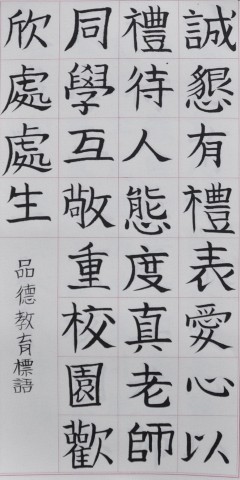 誠懇有禮表愛心以
禮待人態度真老師
同學互敬重校園歡
欣處處生
品德教育標語